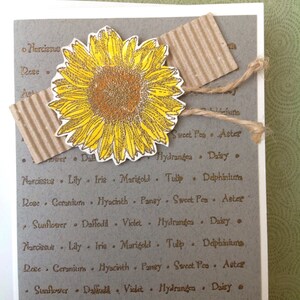 Narcissus
Rose •
Sweet Pea • Aster
Hydrangea • Daisy •
Narcissus • Lily • Iris • Marigold • Tulip • Delphinium
Rose • Geranium • Hyacinth • Pansy • Sweet Pea • Aster
• Sunflower • Daffodil • Violet • Hydrangea • Daisy •
Narcissus • Lily • Iris • Marigold • Tulip • Delphinium
Rose • Geranium • Hyacinth • Pansy • Sweet Pea • Aster
• Sunflower • Daffodil • Violet • Hydrangea • Daisy •